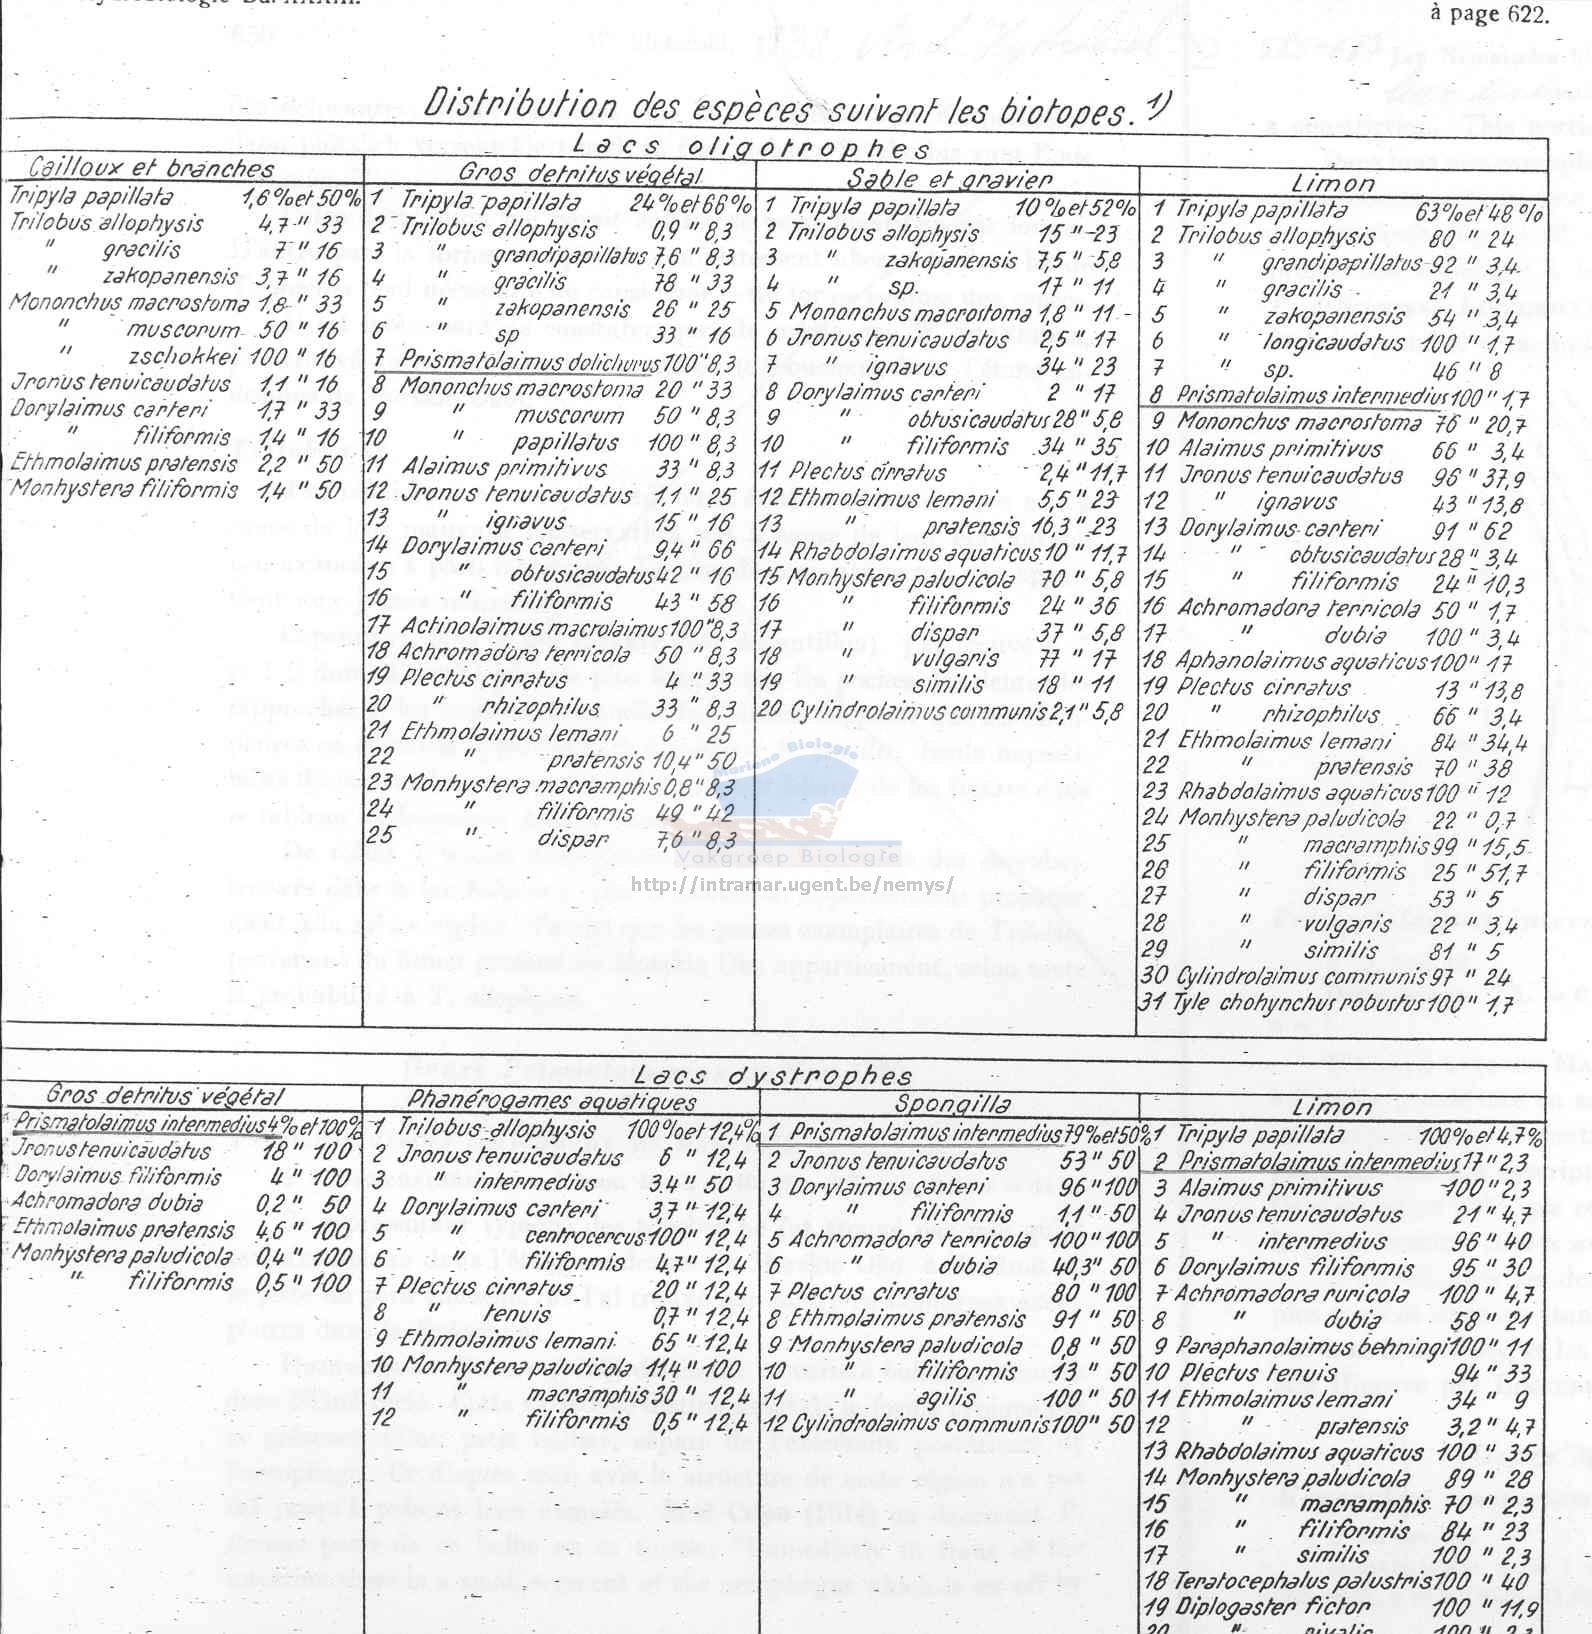 à page 622.
Distribution des espèces suivant les biotopes. 1)
Lacs oligotrophes
Cailloux et branches
Tripyla papillata 1,6% et 50%
Trilobus allophysis 4,7 " 33
" gracilis 7 " 16
" zakopanensis 3,7 " 16
Mononchus macrostoma 1,8 " 33
" muscorum 50 " 16
" zschokkei 100 " 16
Jronus tenuicaudatus 1,1 " 16
Dorylaimus carteri 1,7 " 33
" filiformis 1,4 " 16
Ethmolaimus pratensis 2,2 " 50
Monhystera filiformis 1,4 " 50
Gros detritus végétal
1 Tripyla papillata 24% et 66%
2 Trilobus allophysis 0,9 " 8,3
3 " grandipapillatus 7,6 " 8,3
4 " gracilis 78 " 33
5 " zakopanensis 26 " 25
6 " sp 33 " 16
7 Prismatolaimus dolichurus 100 " 8,3
8 Mononchus macrostoma 20 " 33
9 " muscorum 50 " 8,3
10 " papillatus 100 " 8,3
11 Alaimus primitivus 33 " 8,3
12 Jronus tenuicaudatus 1,1 " 25
13 " ignavus 15 " 16
14 Dorylaimus carteri 9,4 " 66
15 " obtusicaudatus 42 " 16
16 " filiformis 43 " 58
17 Actinolaimus macrolaimus 100 " 8,3
18 Achromadora terricola 50 " 8,3
19 Plectus cirratus 4 " 33
20 " rhizophilus 33 " 8,3
21 Ethmolaimus lemani 6 " 25
22 " pratensis 10,4 " 50
23 Monhystera macramphis 0,8 " 8,3
24 " filiformis 49 " 42
25 " dispar 7,6 " 8,3
Sable et gravier
1 Tripyla papillata 10% et 52%
2 Trilobus allophysis 15 " 23
3 " zakopanensis 7,5 " 5,8
4 " sp. 17 " 11
5 Mononchus macrostoma 1,8 " 11
6 Jronus tenuicaudatus 2,5 " 17
7 " ignavus 34 " 23
8 Dorylaimus carteri 2 " 17
9 " obtusicaudatus 28 " 5,8
10 " filiformis 34 " 35
11 Plectus cirratus 2,4 " 11,7
12 Ethmolaimus lemani 5,5 " 23
13 " pratensis 16,3 " 23
14 Rhabdolaimus aquaticus 10 " 11,7
15 Monhystera paludicola 70 " 5,8
16 " filiformis 24 " 36
17 " dispar 37 " 5,8
18 " vulgaris 77 " 17
19 " similis 18 " 11
20 Cylindrolaimus communis 2,1 " 5,8
Limon
1 Tripyla papillata 63% et 48%
2 Trilobus allophysis 80 " 24
3 " grandipapillatus 92 " 3,4
4 " gracilis 21 " 3,4
5 " zakopanensis 54 " 3,4
6 " longicaudatus 100 " 1,7
7 " sp. 46 " 8
8 Prismatolaimus intermedius 100 " 1,7
9 Mononchus macrostoma 76 " 20,7
10 Alaimus primitivus 66 " 3,4
11 Jronus tenuicaudatus 96 " 37,9
12 " ignavus 43 " 13,8
13 Dorylaimus carteri 91 " 62
14 " obtusicaudatus 28 " 3,4
15 " filiformis 24 " 10,3
16 Achromadora terricola 50 " 1,7
17 " dubia 100 " 3,4
18 Aphanolaimus aquaticus 100 " 17
19 Plectus cirratus 13 " 13,8
20 " rhizophilus 66 " 3,4
21 Ethmolaimus lemani 84 " 34,4
22 " pratensis 70 " 38
23 Rhabdolaimus aquaticus 100 " 12
24 Monhystera paludicola 22 " 0,7
25 " macramphis 99 " 15,5
26 " filiformis 25 " 51,7
27 " dispar 53 " 5
28 " vulgaris 22 " 3,4
29 " similis 81 " 5
30 Cylindrolaimus communis 97 " 24
31 Tyle chohynchus robustus 100 " 1,7
Mariene Biologie
Vakgroep Biologie
http://intramar.ugent.be/nemys/
Lacs dystrophes
Gros detritus végétal
Prismatolaimus intermedius 4% et 100%
Jronus tenuicaudatus 18 " 100
Dorylaimus filiformis 4 " 100
Achromadora dubia 0,2 " 50
Ethmolaimus pratensis 4,6 " 100
Monhystera paludicola 0,4 " 100
" filiformis 0,5 " 100
Phanérogames aquatiques
1 Trilobus allophysis 100% et 12,4%
2 Jronus tenuicaudatus 6 " 12,4
3 " intermedius 3,4 " 50
4 Dorylaimus carteri 3,7 " 12,4
5 " centrocercus 100 " 12,4
6 " filiformis 4,7 " 12,4
7 Plectus cirratus 20 " 12,4
8 " tenuis 0,7 " 12,4
9 Ethmolaimus lemani 65 " 12,4
10 Monhystera paludicola 11,4 " 100
11 " macramphis 30 " 12,4
12 " filiformis 0,5 " 12,4
Spongilla
1 Prismatolaimus intermedius 79% et 50%
2 Jronus tenuicaudatus 53 " 50
3 Dorylaimus carteri 96 " 100
4 " filiformis 1,1 " 50
5 Achromadora terricola 100 " 100
6 " dubia 40,3 " 50
7 Plectus cirratus 80 " 100
8 Ethmolaimus pratensis 91 " 50
9 Monhystera paludicola 0,8 " 50
10 " filiformis 13 " 50
11 " agilis 100 " 50
12 Cylindrolaimus communis 100 " 50
Limon
1 Tripyla papillata 100% et 4,7%
2 Prismatolaimus intermedius 17 " 2,3
3 Alaimus primitivus 100 " 2,3
4 Jronus tenuicaudatus 21 " 4,7
5 " intermedius 96 " 40
6 Dorylaimus filiformis 95 " 30
7 Achromadora ruricola 100 " 4,7
8 " dubia 58 " 21
9 Paraphanolaimus behningi 100 " 11
10 Plectus tenuis 94 " 33
11 Ethmolaimus lemani 34 " 9
12 " pratensis 3,2 " 4,7
13 Rhabdolaimus aquaticus 100 " 35
14 Monhystera paludicola 89 " 28
15 " macramphis 70 " 2,3
16 " filiformis 84 " 23
17 " similis 100 " 2,3
18 Teratocephalus palustris 100 " 40
19 Diplogaster fictor 100 " 11,9